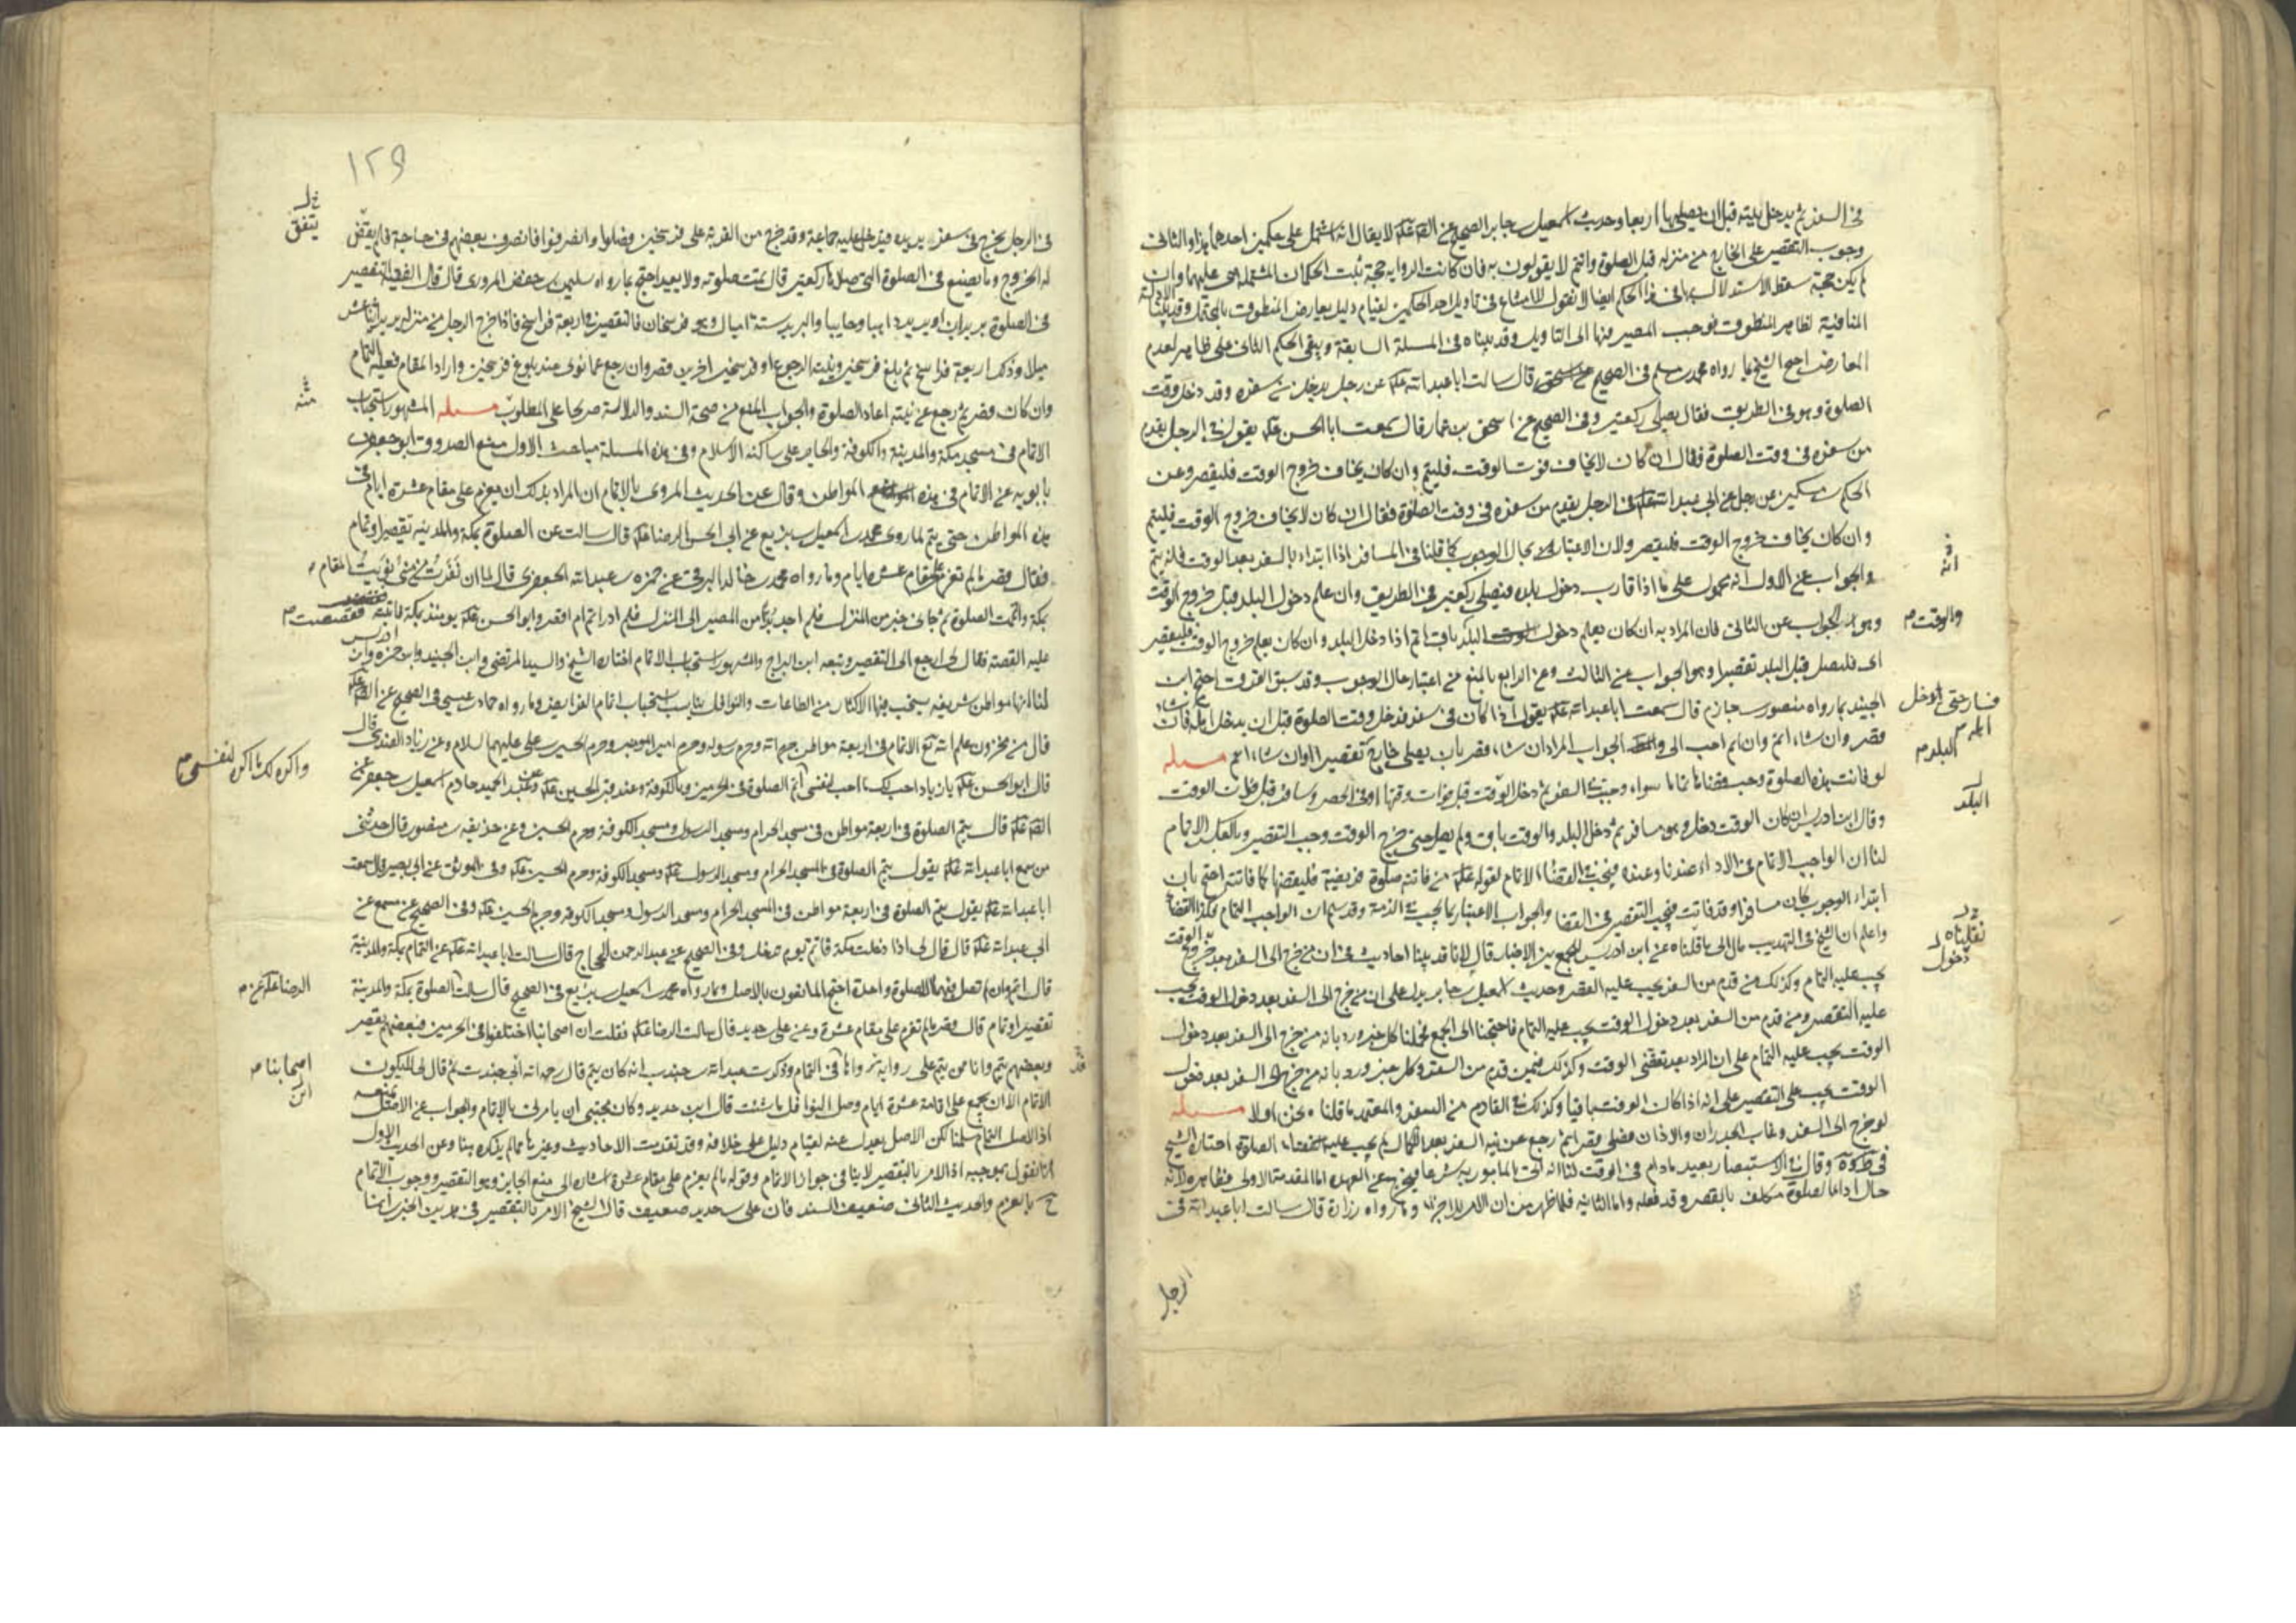 في السفر ثم يدخل بيته قبل ان يصليها اربعا وحديث اسمعيل بن جابر الصحيح عن لا يقال انه اشتمل على حكمين احدهما هذا والثاني
وجوب التقصير على الخارج من منزله قبل الصلوة وانتم لا تقولون به فان كانت الرواية حجة ثبت الحكمان المشتملة هي عليهما وان
لم يكن حجة سقط الاستدلال بها في هذا الحكم ايضا لانا نقول لا امتناع في تاويل احد الحكمين لقيام دليل يعارض المنطوق
المنافية لظاهر المنطوق فوجب المصير فيها الى التاويل وقد بيناه في المسئلة السابقة وبقى الحكم الثاني على ظاهره لعدم
المعارض احتج الشيخ بما رواه محمد بن مسلم في الصحيح قال سالت ابا عبد الله عن رجل يدخل من سفره وقد دخل وقت
الصلوة وهو في الطريق فقال يصلي ركعتين وفي الصحيح عن اسحق بن عمار قال سمعت ابا الحسن يقول في الرجل يقدم
من سفره في وقت الصلوة فقال ان كان لا يخاف فوت الوقت فليتم وان كان يخاف خروج الوقت فليقصر وعن
الحكم بن مسكين عن رجل عن ابي عبد الله في الرجل يقدم من سفره في وقت الصلوة فقال ان كان لا يخاف خروج الوقت فليتم
وان كان يخاف خروج الوقت فليقصر ولان الاعتبار بحال الوجوب كما قلنا في المسافر اذا ابتدا بالسفر بعد الوقت فانه يتم
والجواب عن الاول انه محمول على ما اذا قارب دخول بلده فيصلي ركعتين في الطريق وان علم دخول البلد قبل خروج الوقت
وهو الجواب عن الثاني فان المراد به ان كان يعلم دخول البلد باق اتم اذا دخل البلد وان كان يعلم خروج الوقت فليقصر
اي فليصل قبل البلد تقصيرا وهو الجواب عن الثالث وعن الرابع بالمنع من اعتبار حال الوجوب وقد سبق الفرق احتج ابن
الجنيد بما رواه منصور بن حازم قال سمعت ابا عبد الله يقول اذا كان في سفر فدخل وقت الصلوة قبل ان يدخل اهله فان شاء
قصر وان شاء اتم وان اتم احب الي والجواب المراد ان شاء قصر بان يصلي خارج تقصيرا او ان شاء اتم مسئله
لو فاتت هذه الصلوة وجب قضاؤها تماما سواء وجبت في السفر ثم دخل الوقت قبل فوات وقتها او في الحضر وسافر قبل فوات الوقت
وقال ابن ادريس ان كان الوقت دخل وهو مسافر ثم دخل البلد والوقت باق ولم يصل حتى خرج الوقت وجب التقصير وبالعكس الاتمام
لنا ان الواجب الاتمام في الاداء عندنا وعنده فيجب في القضاء الاتمام لقوله من فاتته صلوة فريضة فليقضها كما فاتته احتج بان
ابتداء الوجوب كان مسافرا وقد فاتت فيجب التقصير في القضا والجواب الاعتبار بما يجب في الذمة وقد سلم ان الواجب التمام فكذا القضاء
واعلم ان الشيخ في التهذيب مال الى ما قلناه عن ابن ادريس للجمع بين الاخبار قال لانا قد بينا احاديث في ان من خرج الى السفر بعد خروج الوقت
يجب عليه التمام وكذلك من قدم من السفر يجب عليه القصر وحديث اسمعيل بن جابر يدل على ان من خرج الى السفر بعد دخول الوقت يجب
عليه التقصير ومن قدم من السفر بعد دخول الوقت يجب عليه التمام فاحتجنا الى الجمع فحملنا كل خبر ورد بانه من خرج الى السفر بعد دخول
الوقت يجب عليه التمام على ان المراد بعد تقضى الوقت وكذلك فيمن قدم من السفر وكل خبر ورد بانه من خرج الى السفر بعد دخول
الوقت يجب على التقصير على انه اذا كان الوقت باقيا وكذلك في القادم من السفر والمعتمد ما قلناه نحن اولا مسئله
لو خرج الى السفر وغاب الجدران والاذان فصلى قصرا ثم رجع عن نية السفر بعد الكمال لم يجب عليه قضاء الصلوة اختاره الشيخ
في وقال في الاستبصار يعيد ما دام في الوقت لنا انه اتى بالمامور به شرعا فيخرج عن العهدة اما المقدمة الاولى فظاهرة لانه
حال اداء الصلوة مكلف بالقصر وقد فعله واما الثانية فلما ظهر من ان الامر للاجزاء وما رواه زرارة قال سالت ابا عبد الله في
الرجل
انه
والوقت
البلد
البلد
نقلناه
دخول
١٢٩
يتفق
في الرجل يخرج في سفر يريده فيدخل عليه جماعة وقد خرج من القرية على فرسخين فصلوا وانصرفوا فانصرف بعضهم في حاجة فلم يقض
له الخروج وما يصنع في الصلوة التي صلاها ركعتين قال تمت صلوته ولا يعيد احتج بما رواه سليمن بن حفص المروزي قال قال الفقيه التقصير
في الصلوة بريدان او بريد ذاهبا وجائيا والبريد ستة اميال وهو فرسخان فالتقصير في اربعة فراسخ فاذا خرج الرجل من منزله يريد اثنا عشر
ميلا وذلك اربعة فراسخ ثم بلغ فرسخين ونيته الرجوع او فرسخين اخرين قصر وان رجع عما نوى عند بلوغ فرسخين واراد المقام فعليه التمام
وان كان قصر ثم رجع عن نيته اعاد الصلوة والجواب المنع من صحة السند والدلالة صريحا على المطلوب مسئله المشهور استحباب
الاتمام في مسجد مكة والمدينة والكوفة والحاير على ساكنه الاسلام وفي هذه المسئلة مباحث الاول منع الصدوق ابو جعفر بن
بابويه عن الاتمام في هذه المواطن وقال عن الحديث المروي بالاتمام ان المراد بذلك ان يعزم على مقام عشرة ايام في
هذه المواطن حتى يتم لما روى محمد بن اسمعيل بن بزيع عن ابي الحسن الرضا قال سالت عن الصلوة بمكة والمدينة تقصير او تمام
فقال قصر ما لم تعزم على مقام عشرة ايام وما رواه محمد بن خالد البرقي عن حمزة بن عبد الله الجعفري قال لما ان نفرت من منى نويت المقام
بمكة واتممت الصلوة ثم جاءني خبر من المنزل فلم اجد بدا من المصير الى المنزل فلم ادر اتم ام اقصر وابو الحسن يومئذ بمكة فاتيته فقصصت
عليه القصة فقال لي ارجع الى التقصير وتبعه ابن البراج والمشهور استحباب الاتمام اختاره الشيخ والسيد المرتضى وابن الجنيد وابن حمزة وابن ادريس
لنا انها مواطن شريفة يستحب فيها الاكثار من الطاعات والنوافل يناسب استحباب اتمام الفرايض وما رواه حماد بن عيسى في الصحيح عن
قال من مخزون علم الله تع الاتمام في اربعة مواطن حرم الله وحرم رسوله وحرم امير المؤمنين وحرم الحسين بن علي عليهما السلام وعن زياد القندي قال
قال ابو الحسن يا زياد احب لك ما احب لنفسي اتم الصلوة في الحرمين وبالكوفة وعند قبر الحسين وعن عبد الحميد خادم اسمعيل بن جعفر عن
قال يتم الصلوة في اربعة مواطن في مسجد الحرام ومسجد الرسول ومسجد الكوفة وحرم الحسين وعن حذيفة بن منصور قال حدثني
من سمع ابا عبد الله يقول يتم الصلوة في المسجد الحرام ومسجد الرسول ومسجد الكوفة وحرم الحسين وفي الموثق عن ابي بصير قال سمعت
ابا عبد الله يقول يتم الصلوة في اربعة مواطن في المسجد الحرام ومسجد الرسول ومسجد الكوفة وحرم الحسين وفي الصحيح عن مسمع عن
ابي عبد الله قال قال لي اذا دخلت مكة فاتم يوم تدخل وفي الصحيح عن عبد الرحمن بن الحجاج قال سالت ابا عبد الله عن التمام بمكة والمدينة
قال اتم وان لم تصل فيهما الا صلوة واحدة احتج المانعون بالاصل وبما رواه محمد بن اسمعيل بن بزيع في الصحيح قال سالت الصلوة بمكة والمدينة
تقصير او تمام قال قصر ما لم تعزم على مقام عشرة وعن علي بن حديد قال سالت الرضا فقلت ان اصحابنا اختلفوا في الحرمين فبعضهم يقصر
وبعضهم يتم وانا ممن يتم على رواية رواها في التمام وذكرت عبد الله بن جندب انه كان يتم قال رحم الله ابن جندب ثم قال لي لا يكون
الاتمام الا ان تجمع على اقامة عشرة ايام وصل النوافل ما شئت قال ابن حديد وكان محبتي ان يامرني بالاتمام والجواب عن الاصل
اذ الاصل التمام سلمنا لكن الاصل يعدل عنه لقيام دليل على خلافه وقد تقدمت الاحاديث وغيرها مما لم يذكره هنا وعن الحديث الاول
انا نقول بموجبه اذ الامر بالتقصير لا ينافي جواز الاتمام وقوله ما لم يعزم على مقام عشرة اشارة الى منع الجايز وهو التقصير ووجوب الاتمام
ح بالعزم والحديث الثاني ضعيف السند فان علي بن حديد ضعيف قال الشيخ الامر بالتقصير في هذين الخبرين انما
واكره لك ما اكره لنفسي
الرضا عن
اصحابنا